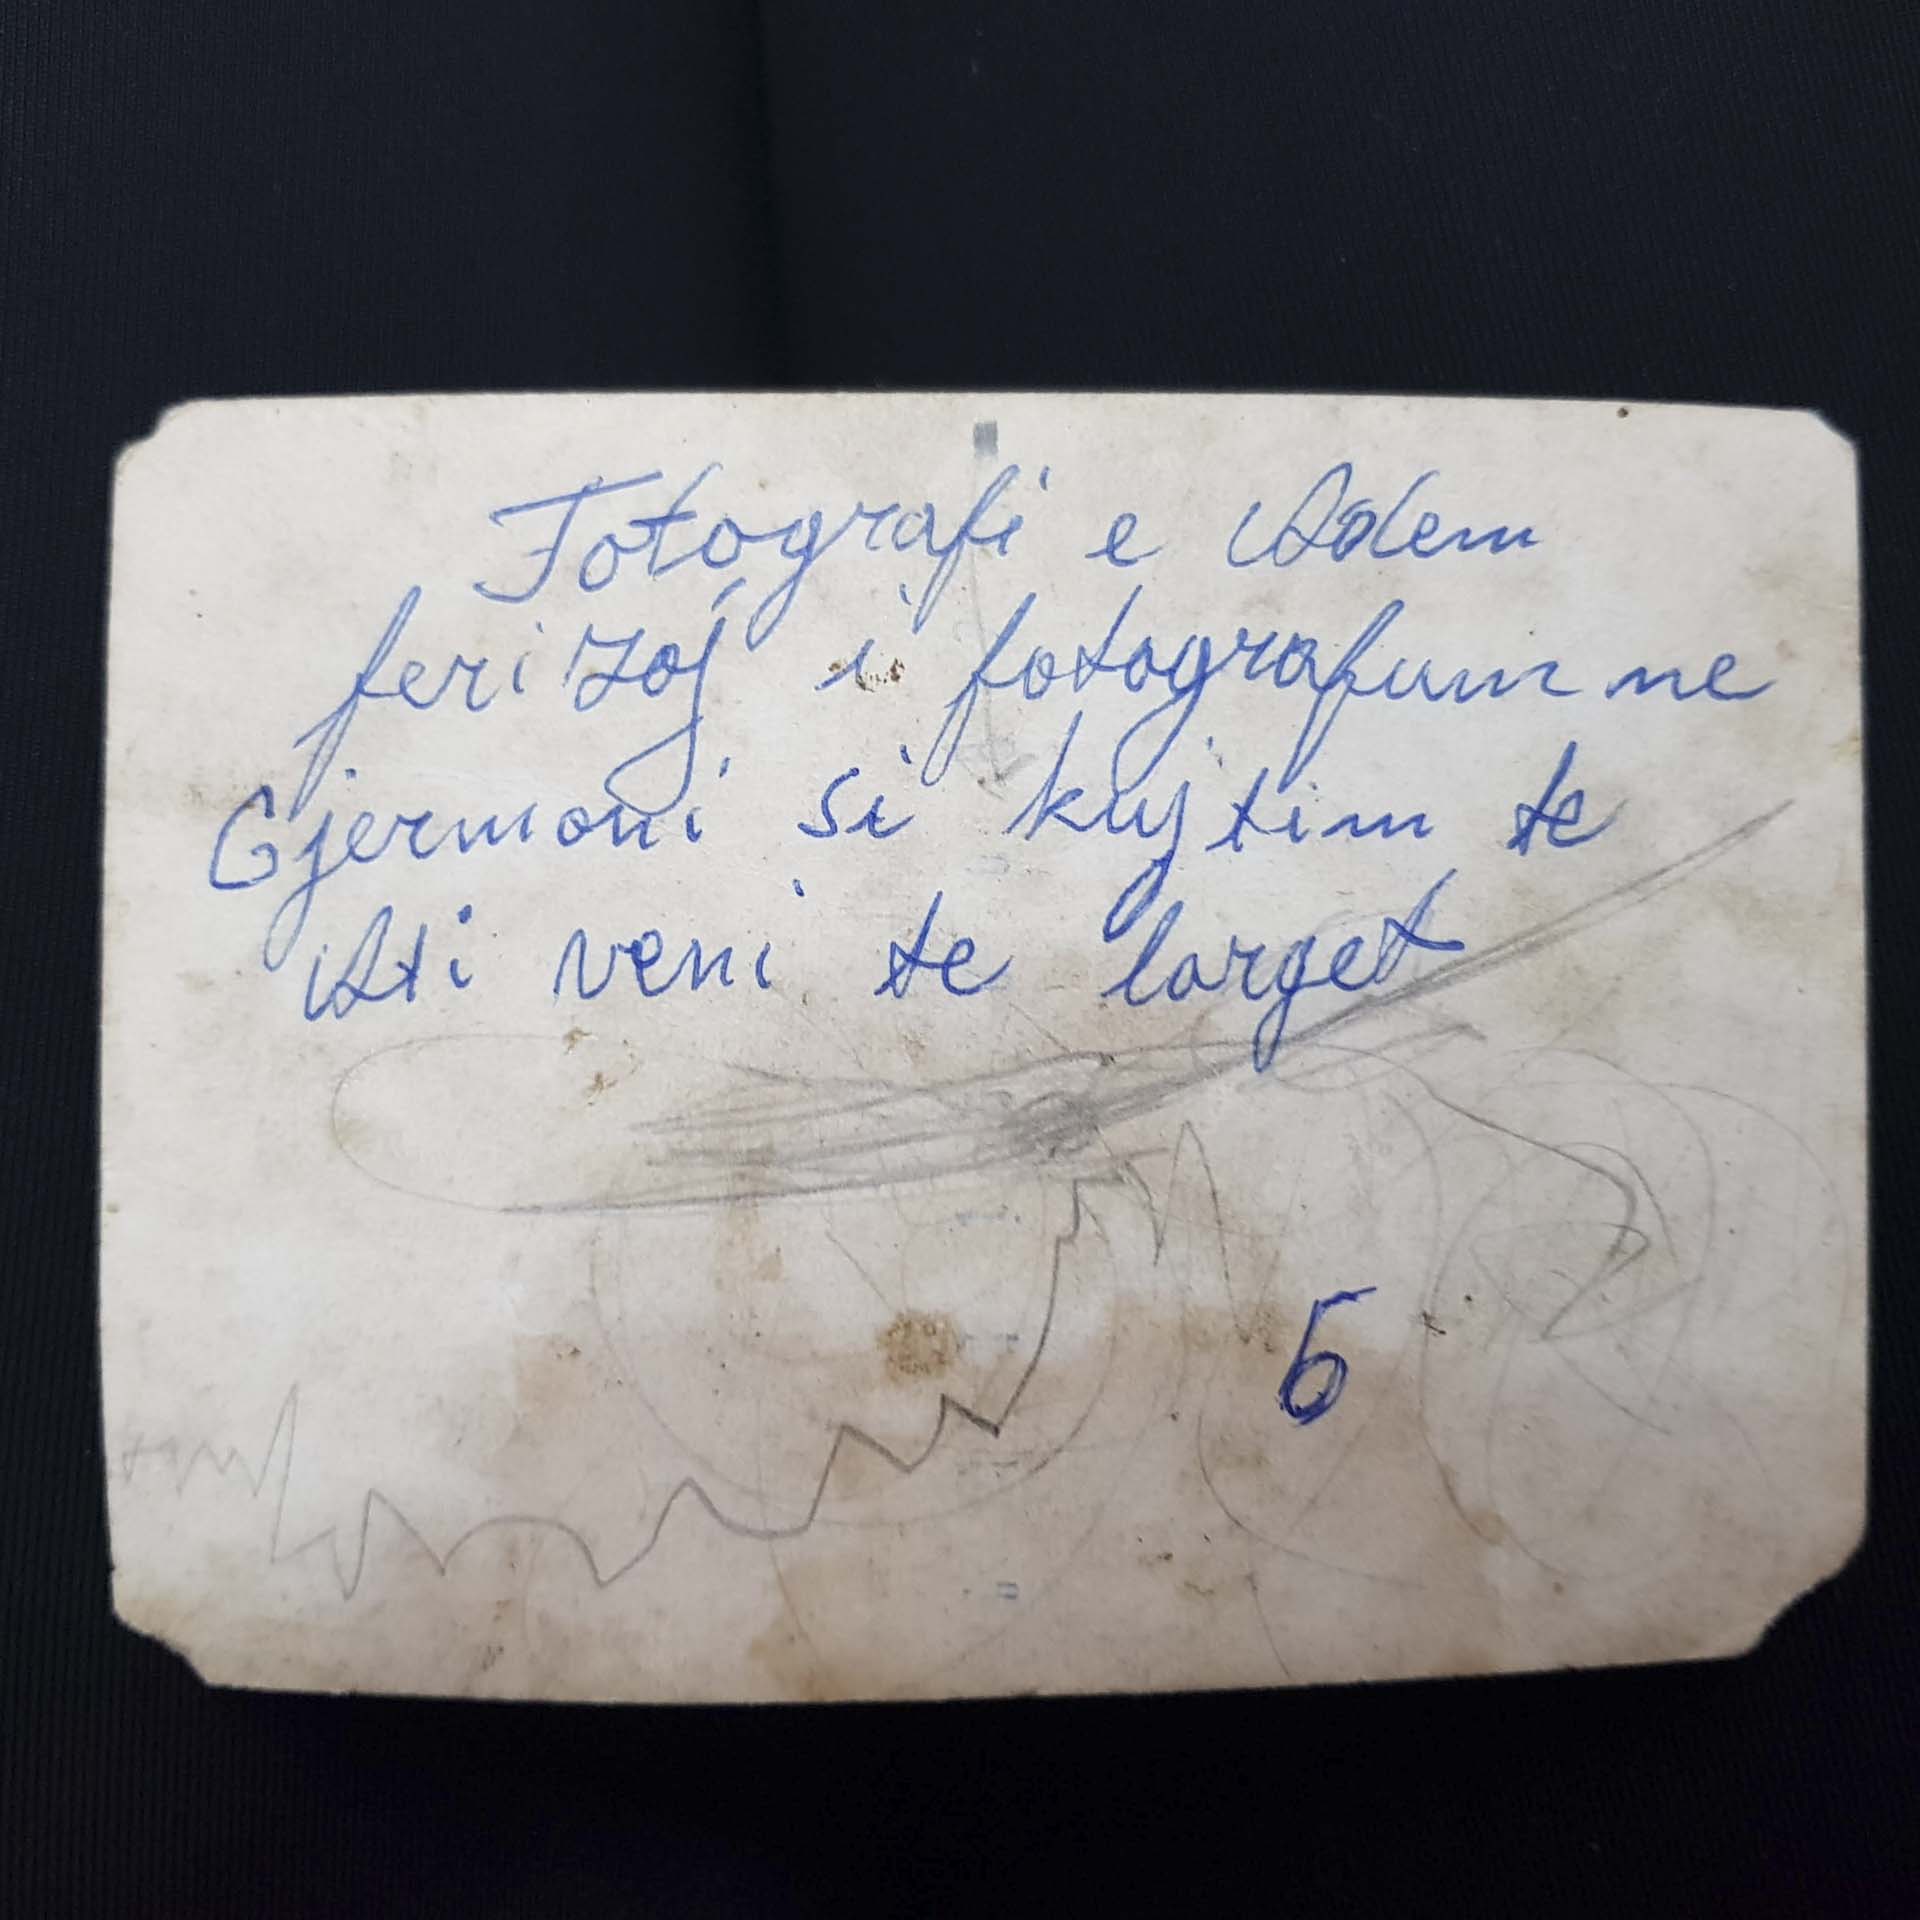 Fotografi e Adem
ferizoj i fotografum ne
Gjermoni si kujtim te
Ati veni te larget
6